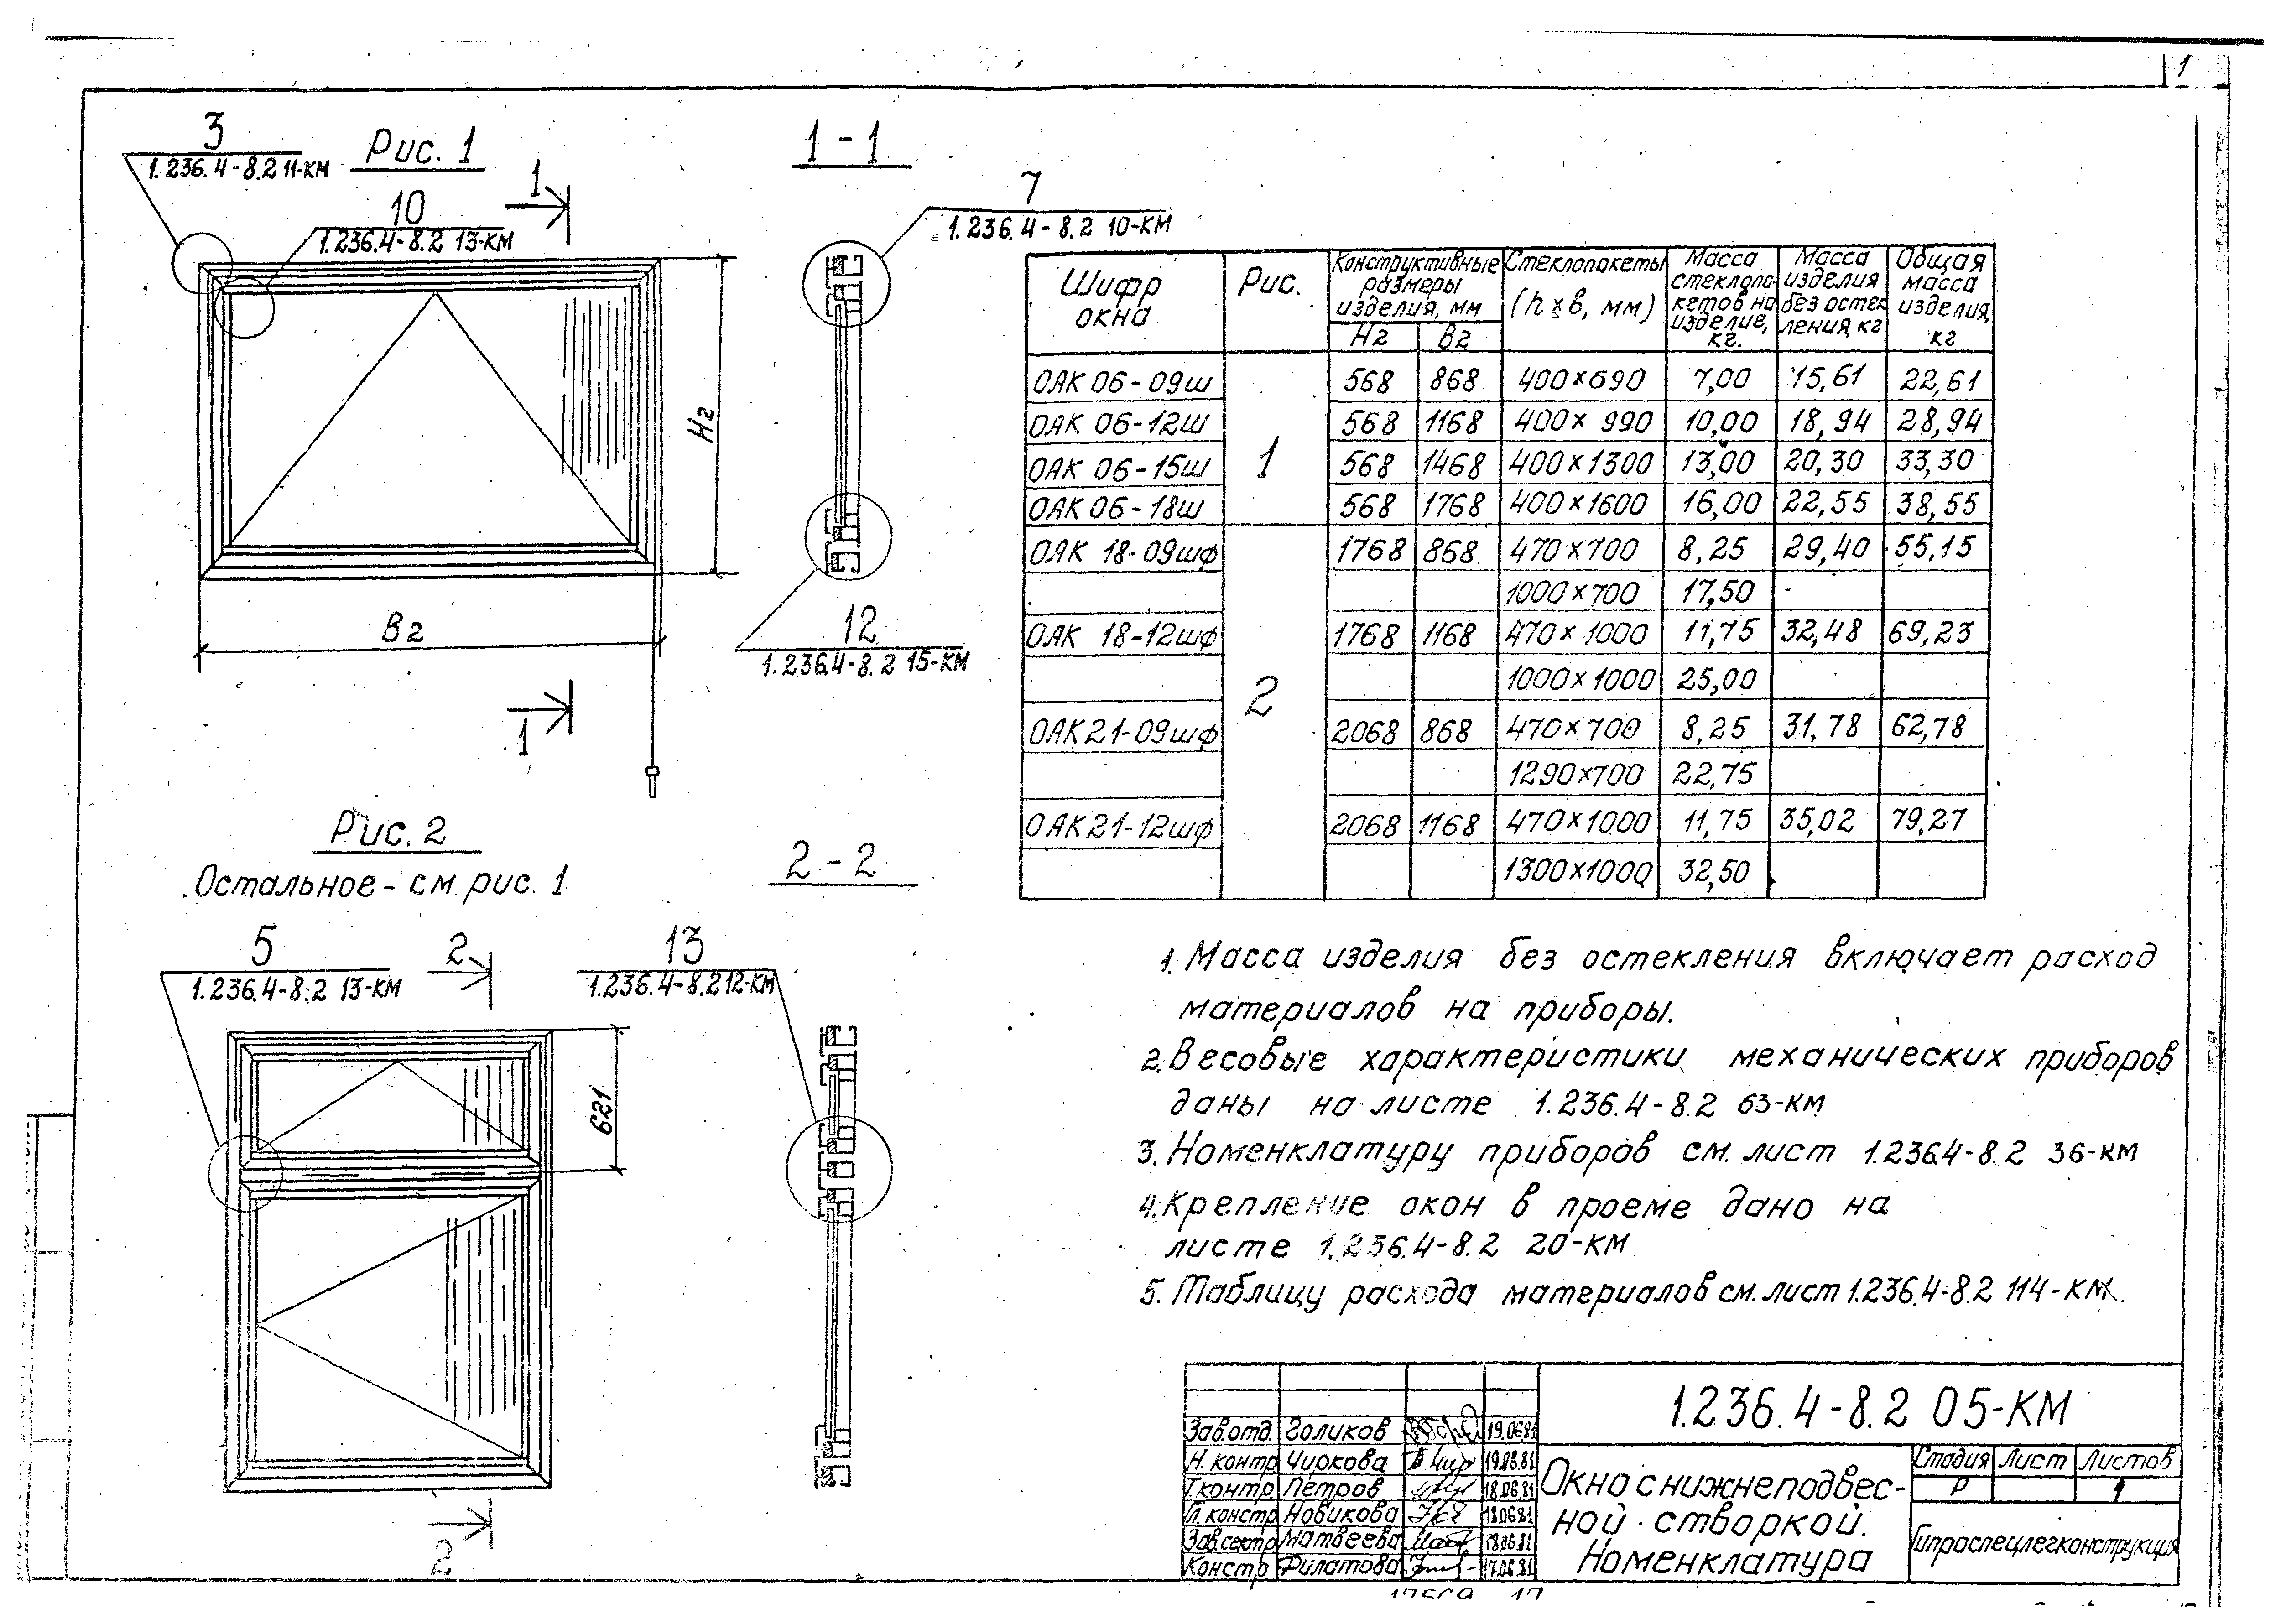 1
3
1.236.4-8.2 11-КМ
Рис. 1
10
1.236.4-8.2 13-КМ
1
Н2
В2
1
1-1
7
1.236.4-8.2 10-КМ
12
1.236.4-8.2 15-КМ
Рис. 2
Остальное - см. рис. 1
2-2
5
1.236.4-8.2 13-КМ
2
13
1.236.4-8.2 12-КМ
621
2
Шифр окна | Рис. | Конструктивные размеры изделия, мм | Стеклопакеты (h х в, мм) | Масса стеклопакетов на изделие, кг. | Масса изделия без остекления, кг | Общая масса изделия, кг
Н2 | В2
ОАК 06-09ш | 1 | 568 | 868 | 400×690 | 7,00 | 15,61 | 22,61
ОАК 06-12ш | 568 | 1168 | 400×990 | 10,00 | 18,94 | 28,94
ОАК 06-15ш | 568 | 1468 | 400×1300 | 13,00 | 20,30 | 33,30
ОАК 06-18ш | 568 | 1768 | 400×1600 | 16,00 | 22,55 | 38,55
ОАК 18-09шф | 2 | 1768 | 868 | 470×700 | 8,25 | 29,40 | 55,15
1000×700 | 17,50
ОАК 18-12шф | 1768 | 1168 | 470×1000 | 11,75 | 32,48 | 69,23
1000×1000 | 25,00
ОАК 21-09шф | 2068 | 868 | 470×700 | 8,25 | 31,78 | 62,78
1290×700 | 22,75
ОАК 21-12шф | 2068 | 1168 | 470×1000 | 11,75 | 35,02 | 79,27
1300×1000 | 32,50
1. Масса изделия без остекления включает расход
материалов на приборы.
2. Весовые характеристики механических приборов
даны на листе 1.236.4-8.2 63-КМ
3. Номенклатуру приборов см. лист 1.236.4-8.2 36-КМ
4. Крепление окон в проеме дано на
листе 1.236.4-8.2 20-КМ
5. Таблицу расхода материалов см. лист 1.236.4-8.2 114-КМ.
Зав.отд. Голиков 19.06.81
Н. контр Чиркова 19.06.81
Т.контр. Петров 18.06.81
Гл.констр Новикова 18.06.81
Зав.сектр Матвеева 18.06.81
Констр Филатова 17.06.81
1.236.4-8.2 05-КМ
Окно с нижнеподвес-
ной створкой.
Номенклатура
Стадия Лист Листов
Р 1
Гипроспецлегконструкция